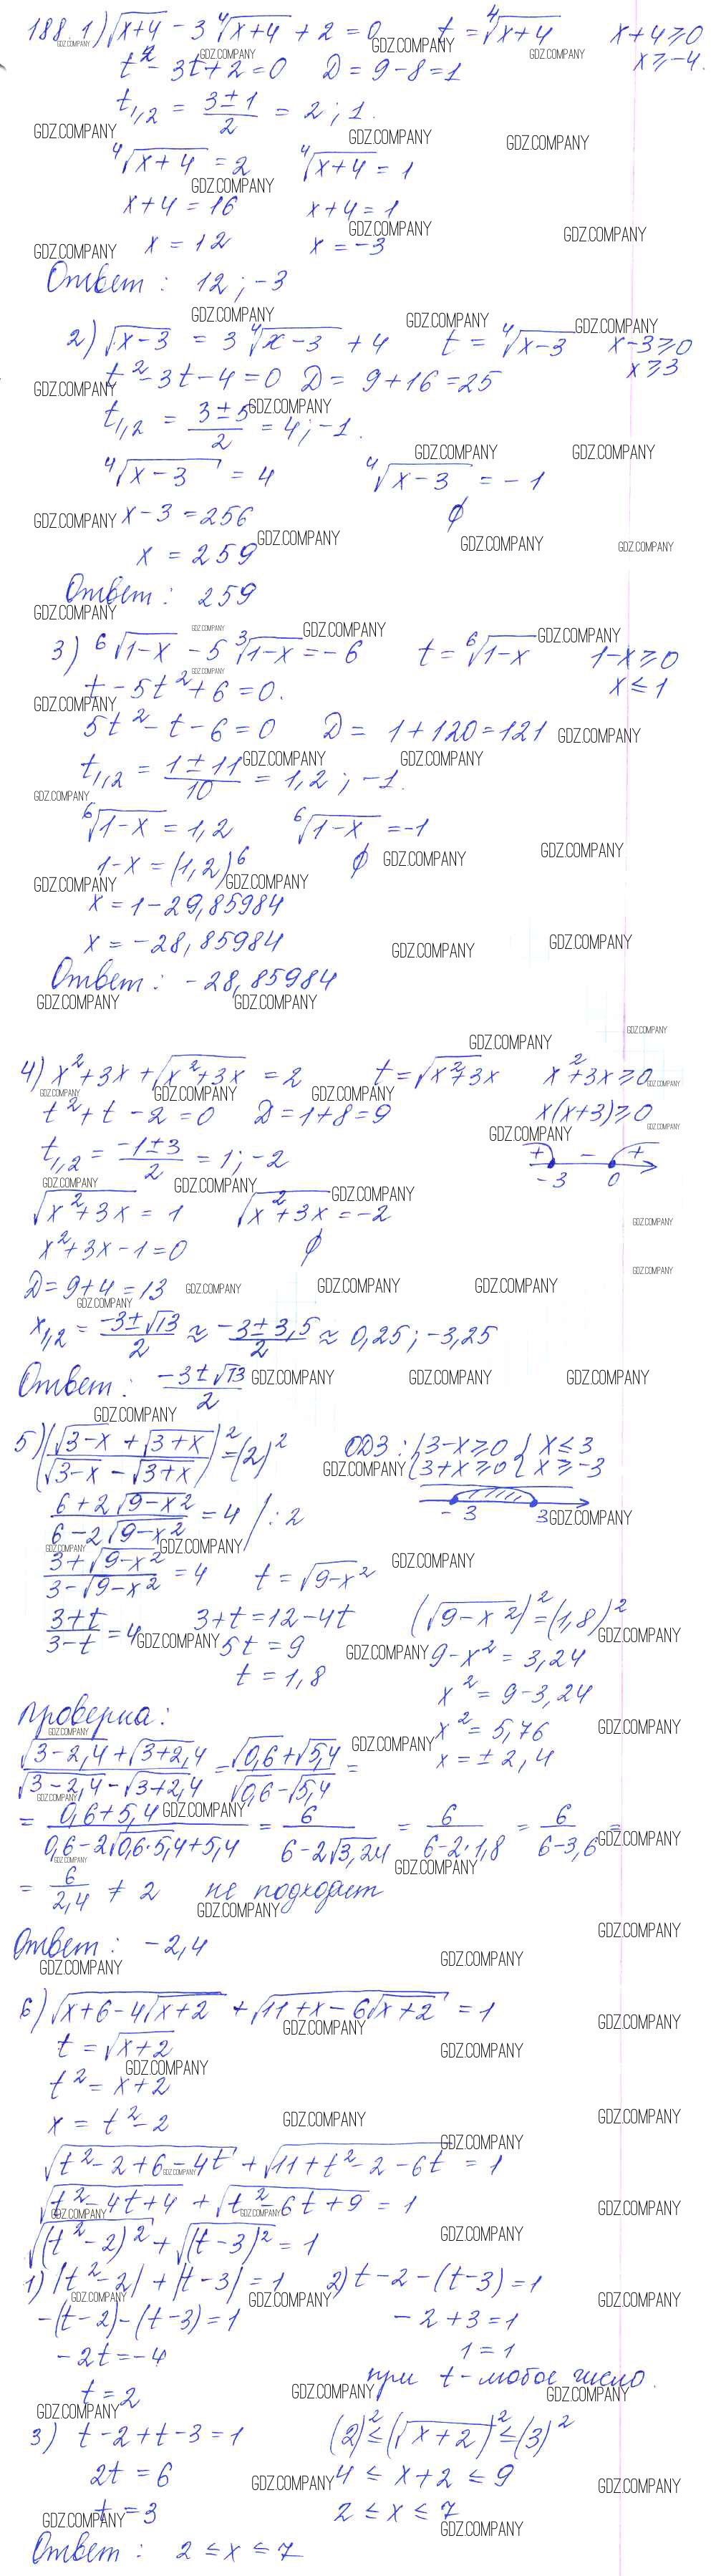 188. 1) √(x+4) - 3 ⁴√(x+4) + 2 = 0   t = ⁴√(x+4)   x+4 ≥ 0
t² - 3t + 2 = 0   D = 9 - 8 = 1   x ≥ -4.
t₁,₂ = (3 ± 1)/2 = 2; 1.
⁴√(x+4) = 2   ⁴√(x+4) = 1
x+4 = 16   x+4 = 1
x = 12   x = -3
Ответ: 12; -3
2) √(x-3) = 3 ⁴√(x-3) + 4   t = ⁴√(x-3)   x-3 ≥ 0
t² - 3t - 4 = 0   D = 9 + 16 = 25   x ≥ 3
t₁,₂ = (3 ± 5)/2 = 4; -1.
⁴√(x-3) = 4   ⁴√(x-3) = -1
x - 3 = 256   ∅
x = 259
Ответ: 259
3) ⁶√(1-x) - 5 ³√(1-x) = -6   t = ⁶√(1-x)   1-x ≥ 0
t - 5t² + 6 = 0.   x ≤ 1
5t² - t - 6 = 0   D = 1 + 120 = 121
t₁,₂ = (1 ± 11)/10 = 1,2; -1.
⁶√(1-x) = 1,2   ⁶√(1-x) = -1
1-x = (1,2)⁶   ∅
x = 1 - 29,85984
x = -28,85984
Ответ: -28,85984
4) x² + 3x + √(x² + 3x) = 2   t = √(x² + 3x)   x² + 3x ≥ 0
t² + t - 2 = 0   D = 1 + 8 = 9   x(x+3) ≥ 0
t₁,₂ = (-1 ± 3)/2 = 1; -2   + - +
-3 0
√(x² + 3x) = 1   √(x² + 3x) = -2
x² + 3x - 1 = 0   ∅
D = 9 + 4 = 13
x₁,₂ = (-3 ± √13)/2 ≈ (-3 ± 3,5)/2 ≈ 0,25; -3,25
Ответ: (-3 ± √13)/2
5) ((√(3-x) + √(3+x))/(√(3-x) - √(3+x)))² = (2)²   ОДЗ: { 3-x ≥ 0 { x ≤ 3
{ 3+x ≥ 0 { x ≥ -3
(6 + 2√(9-x²))/(6 - 2√(9-x²)) = 4 /:2   -3 3
(3 + √(9-x²))/(3 - √(9-x²)) = 4   t = √(9-x²)
(3+t)/(3-t) = 4   3+t = 12-4t   (√(9-x²))² = (1,8)²
5t = 9   9-x² = 3,24
t = 1,8   x² = 9-3,24
проверка:   x² = 5,76
x = ±2,4
(√(3-2,4) + √(3+2,4))/(√(3-2,4) - √(3+2,4)) = (√0,6 + √5,4)/(√0,6 - √5,4) =
= (0,6+5,4)/(0,6-2√(0,6·5,4)+5,4) = 6/(6-2√3,24) = 6/(6-2·1,8) = 6/(6-3,6) =
= 6/2,4 ≠ 2   не подходит
Ответ: -2,4
6) √(x+6-4√(x+2)) + √(11+x-6√(x+2)) = 1
t = √(x+2)
t² = x+2
x = t²-2
√(t²-2+6-4t) + √(11+t²-2-6t) = 1
√(t²-4t+4) + √(t²-6t+9) = 1
√((t²-2)²) + √((t-3)²) = 1
1) |t²-2| + |t-3| = 1   2) t-2-(t-3) = 1
-(t-2)-(t-3) = 1   -2+3 = 1
-2t = -4   1 = 1
t = 2   при t - любое число.
3) t-2+t-3 = 1   (2)² ≤ (√(x+2))² ≤ (3)²
2t = 6   4 ≤ x+2 ≤ 9
t = 3   2 ≤ x ≤ 7
Ответ: 2 ≤ x ≤ 7
GDZ.COMPANY